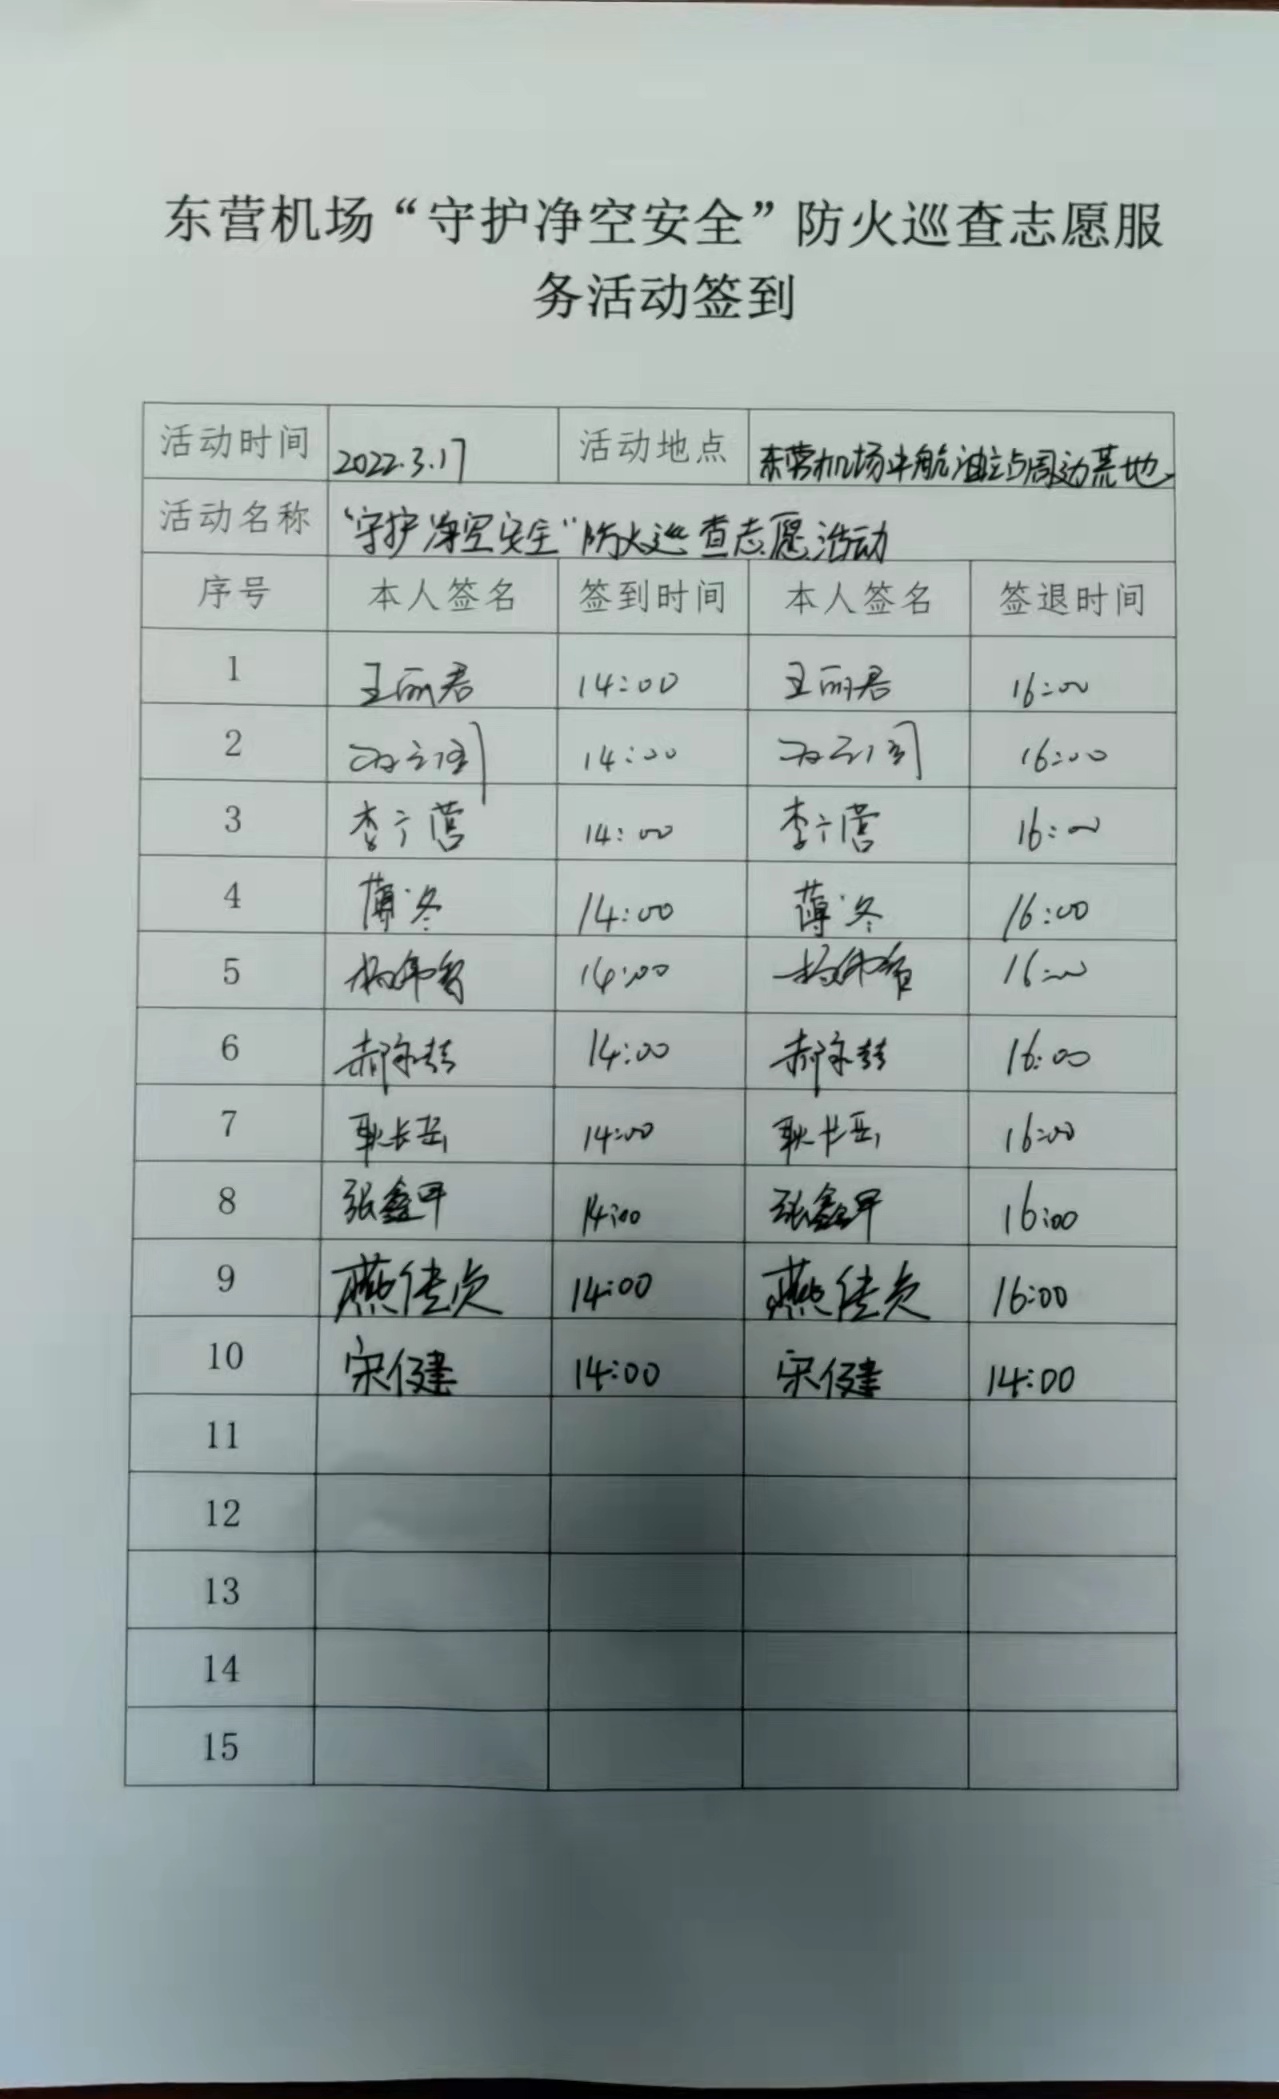 东营机场“守护净空安全”防火巡查志愿服
务活动签到
活动时间 2022.3.17 活动地点 东营机场中航油站周边荒地
活动名称 “守护净空安全”防火巡查志愿活动
序号 本人签名 签到时间 本人签名 签退时间
1 王丽君 14:00 王丽君 16:00
2 14:00 16:00
3 李广营 14:00 李广营 16:00
4 薄冬 14:00 薄冬 16:00
5 14:00 16:00
6 14:00 16:00
7 耿长岳 14:00 耿长岳 16:00
8 张鑫 14:00 张鑫 16:00
9 燕佳贞 14:00 燕佳贞 16:00
10 宋健 14:00 宋健 14:00
11
12
13
14
15